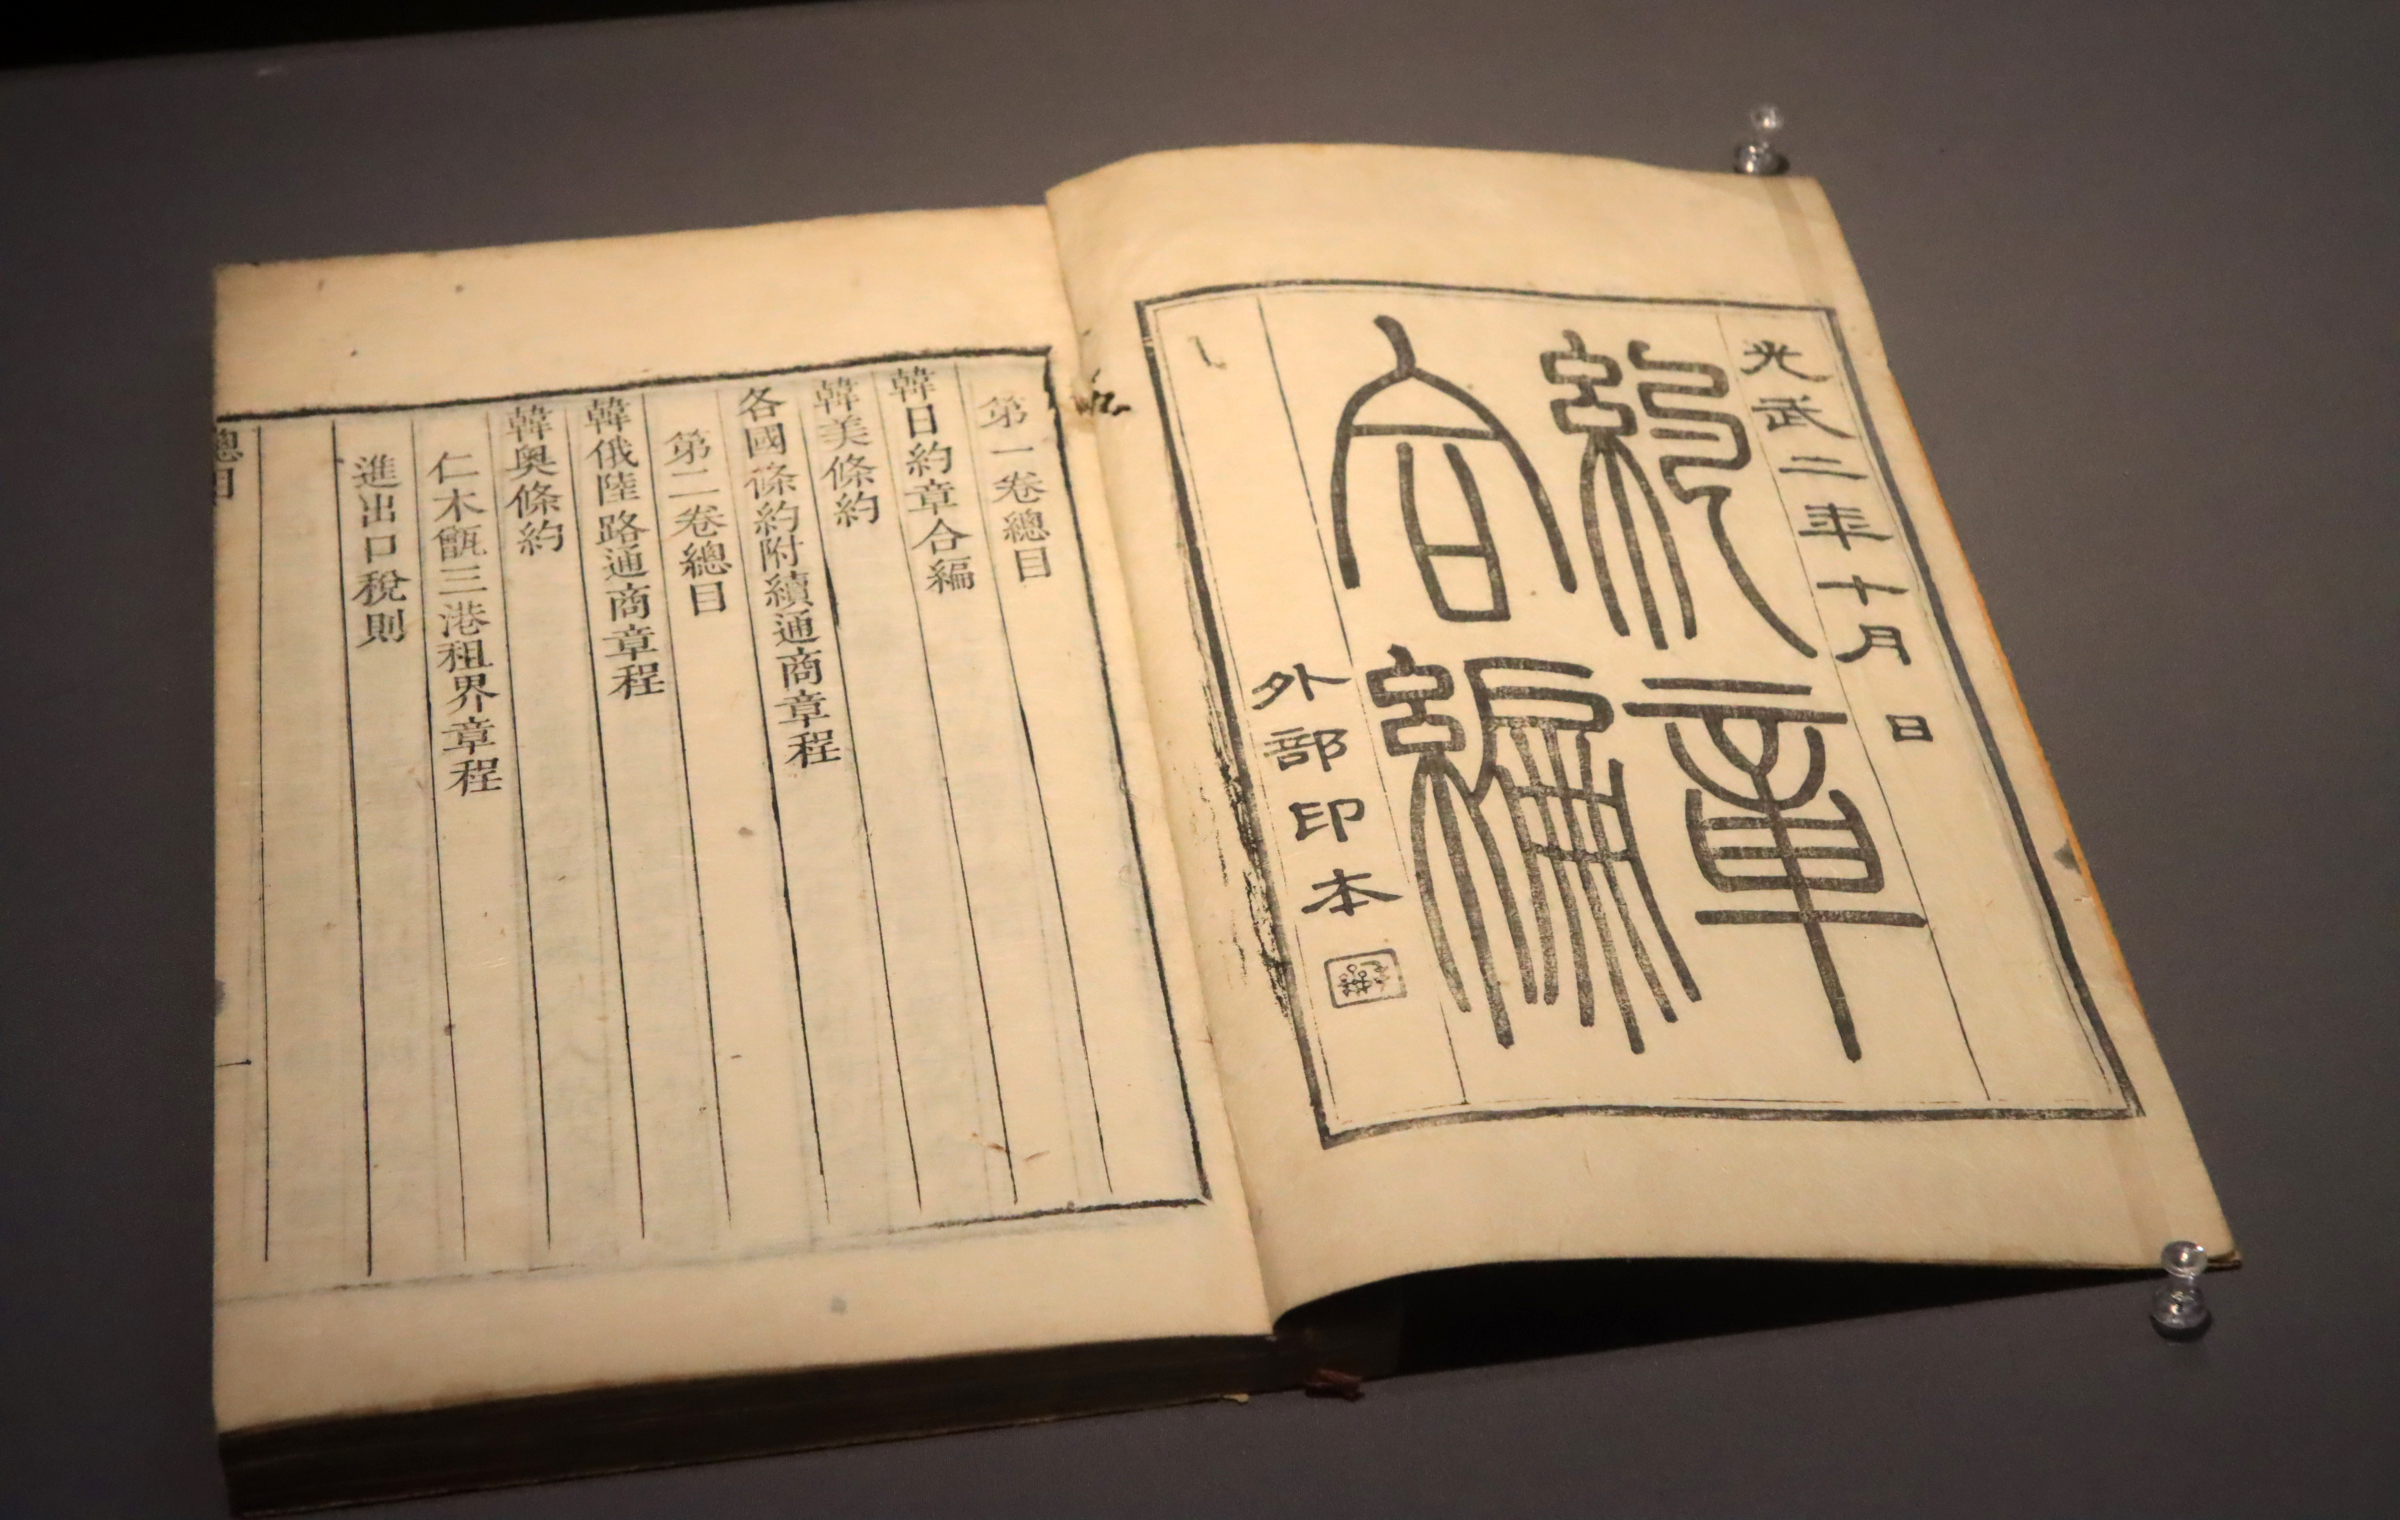 光武二年十月 日
約章
合編
外部印本
第一卷總目
韓日約章合編
韓美條約
各國條約附續通商章程
第二卷總目
韓俄陸路通商章程
韓奧條約
仁木甑三港租界章程
進出口稅則
總目
一